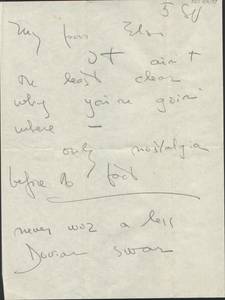 5 Sep
My poor Elsa
It ain't
the least clear
why you're goin'
where —
only nostalgia
before the fact
never woz a less
Dorian swan